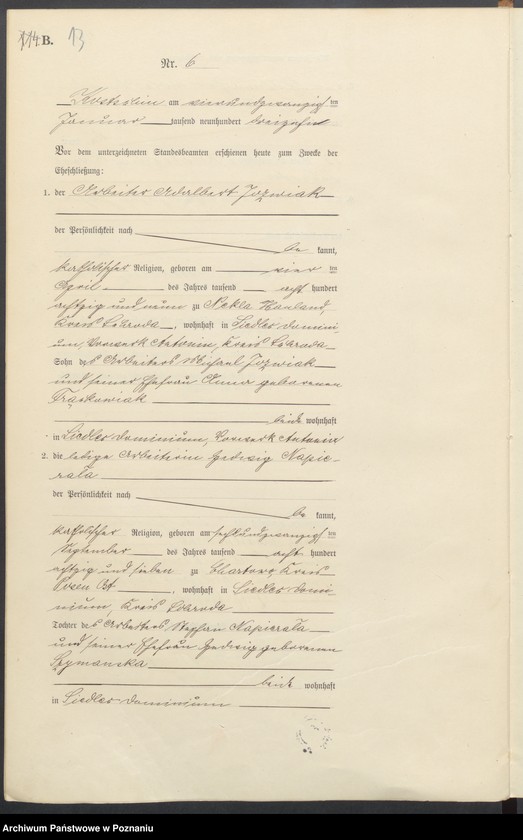 B. 13
Nr. 6
Kostschin am vierundzwanzigsten
Januar tausend neunhundert dreizehn
Vor dem unterzeichneten Standesbeamten erschienen heute zum Zwecke der
Eheschließung:
1. der Arbeiter Adalbert Jozwiak
der Persönlichkeit nach
be kannt,
katholischer Religion, geboren am vier ten
April des Jahres tausend acht hundert
achtzig und neun zu Nekla Hauland,
Kreis Schroda, wohnhaft in Siedlec Domini-
um, Vorwerk Antonin, Kreis Schroda
Sohn des Arbeiters Michael Jozwiak
und seiner Ehefrau Anna geborenen
beide wohnhaft
in Siedlec Dominium, Vorwerk Antonin
2. die ledige Arbeiterin Hedwig Napie-
rala
der Persönlichkeit nach
be kannt,
katholischer Religion, geboren am sechsundzwanzigsten
September des Jahres tausend acht hundert
achtzig und sieben zu Chartowo Kreis
Posen Ost, wohnhaft in Siedlec Domi-
nium, Kreis Schroda
Tochter des Arbeiters Stephan Napierala
und seiner Ehefrau Hedwig geborenen
Szymanska
beide wohnhaft
in Siedlec Dominium
Archiwum Państwowe w Poznaniu